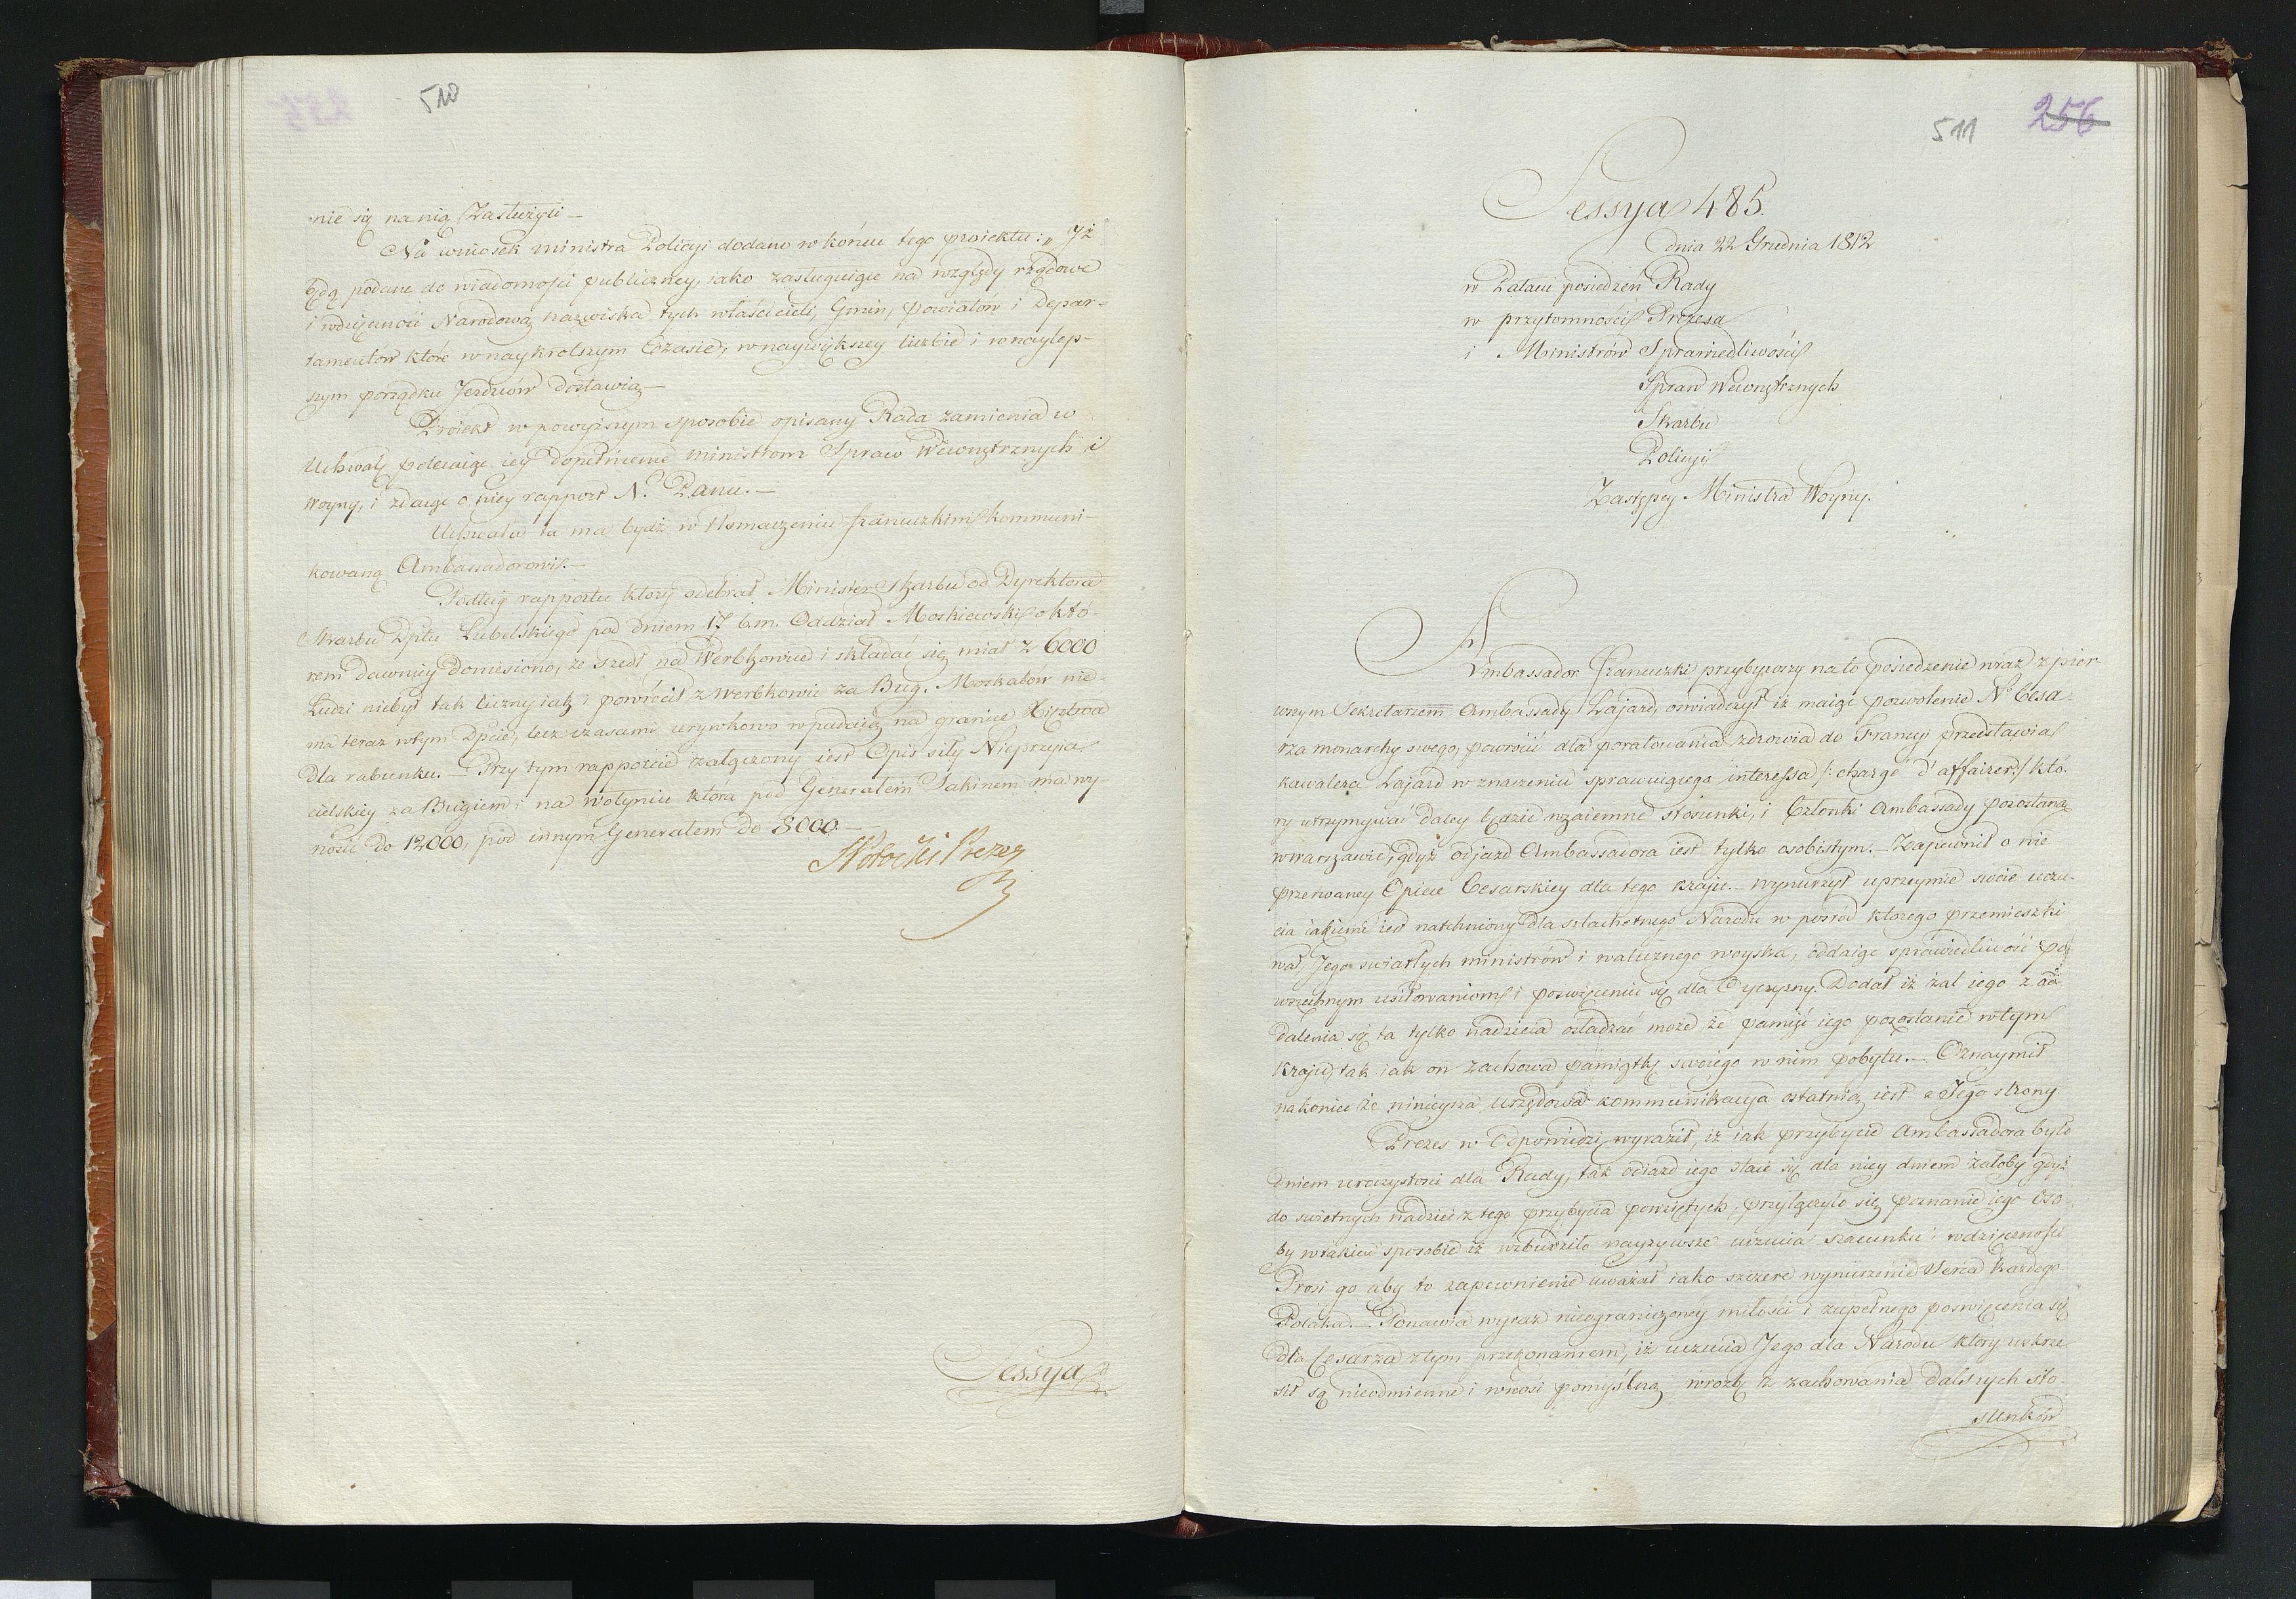 510
nie są na nią Zasłużyli —
Na wniosek Ministra Policyi dodano w końcu tego proiektu: „ Iż
będą podane do wiadomości publiczney, iako zasługuiące na względy rządowe
i wdzięczność Narodową nazwiska tych właścicieli, Gmin, powiatów i Depar-
tamentów które w naykrotszym Czasie, w naywiększey liczbie i w naylep-
szym porządku Jezdzców dostawią —
Proiekt w powyższym sposobie opisany Rada zamienia w
Uchwałę polecaiąc iey dopełnienie Ministrom Spraw Wewnętrznych i
Woyny, i zdaiąc o niey rapport N. Panu. —
Uchwała ta ma bydź w tłomaczeniu francuzkim kommuni-
kowaną Ambassadorowi. —
Podług rapportu który odebrał Minister Skarbu od Dyrektora
Skarbu Dptu Lubelskiego pod dniem 17 b.m. Oddział Moskiewski o któ-
rem dawniey doniesiono, że szedł na Werbkowice i składać się miał z 6000
Ludzi niebył tak liczny iak i powrócił z Werbkowic za Bug. Moskalów nie-
ma teraz w tym Dpcie, lecz czasami urywkowo wpadaią na granice Xięstwa
dla rabunku. — Przy tym rapporcie załączony iest Opis siły Nieprzyja-
cielskiey za Bugiem i na Wołyniu która pod Generałem Sakinem ma wy-
nosić do 12000, pod innym Generałem do 8000. —
St Potocki Prezes
Sessya
511 256
Sessya 485.
dnia 22 Grudnia 1812
w Pałacu posiedzeń Rady
w przytomności Prezesa
i Ministrów Sprawiedliwości
Spraw Wewnętrznych
Skarbu
Policyi
Zastępcy Ministra Woyny.
Ambassador Francuzki przybywszy na to posiedzenie wraz z pier-
wszym Sekretarzem Ambassady Lajard, oswiadczył iż maiąc pozwolenie N. Cesa-
rza monarchy swego, powrócić dla poratowania zdrowia do Francyi przedstawia
kawalera Lajard w znaczeniu sprawuiącego interessa /: chargé d'affaires :/ któ-
ry utrzymywać daley będzie wzaiemne stosunki, i Członki Ambassady pozostaną
w Warszawie, gdyż odjazd Ambassadora iest tylko osobistym. — Zapewnił o nie
przerwaney Opiece Cesarskiey dla tego kraju. — wynurzył uprzeymie swoie uczu-
cia iakiemi iest natchniony dla szlachetnego Narodu w posród ktorego przemieszki-
wał, Jego swiatłych ministrów i walecznego woyska, oddaiąc sprawiedliwość po-
wszechnym usiłowaniom i poswięceniu się dla Oyczyzny. Dodał iż żal iego z od-
dalenia się ta tylko nadzieia osładzać może że pamięć iego pozostanie w tym
kraju, tak iak on zachowa pamiątkę swoiego w nim pobytu. — Oznaymił
nakoniec że ninieysza urzędowa kommunikacya ostatnią iest z Jego strony.
Prezes w Odpowiedzi wyraził, iż iak przybycie Ambassadora było
dniem uroczystości dla Rady, tak odiazd iego staie się dla niey dniem żałoby gdyż
do swietnych nadziei z tego przybycia powziętych, przyłączyło się poznanie iego oso-
by w takim sposobie iż wzbudziło nayżywsze uczucia szacunku i wdzięczności
Prosi go aby to zapewnienie uważał iako szczere wynurzenie Serca każdego
Polaka. — Ponawia wyraz nieograniczoney miłości i zupełnego poswięcenia się
dla Cesarza z tym przekonaniem, iż uczucia Jego dla Narodu który wskrze-
sił są nieodmienne i wnosi pomyślną wrożbę z zachowania dalszych sto-
sunków